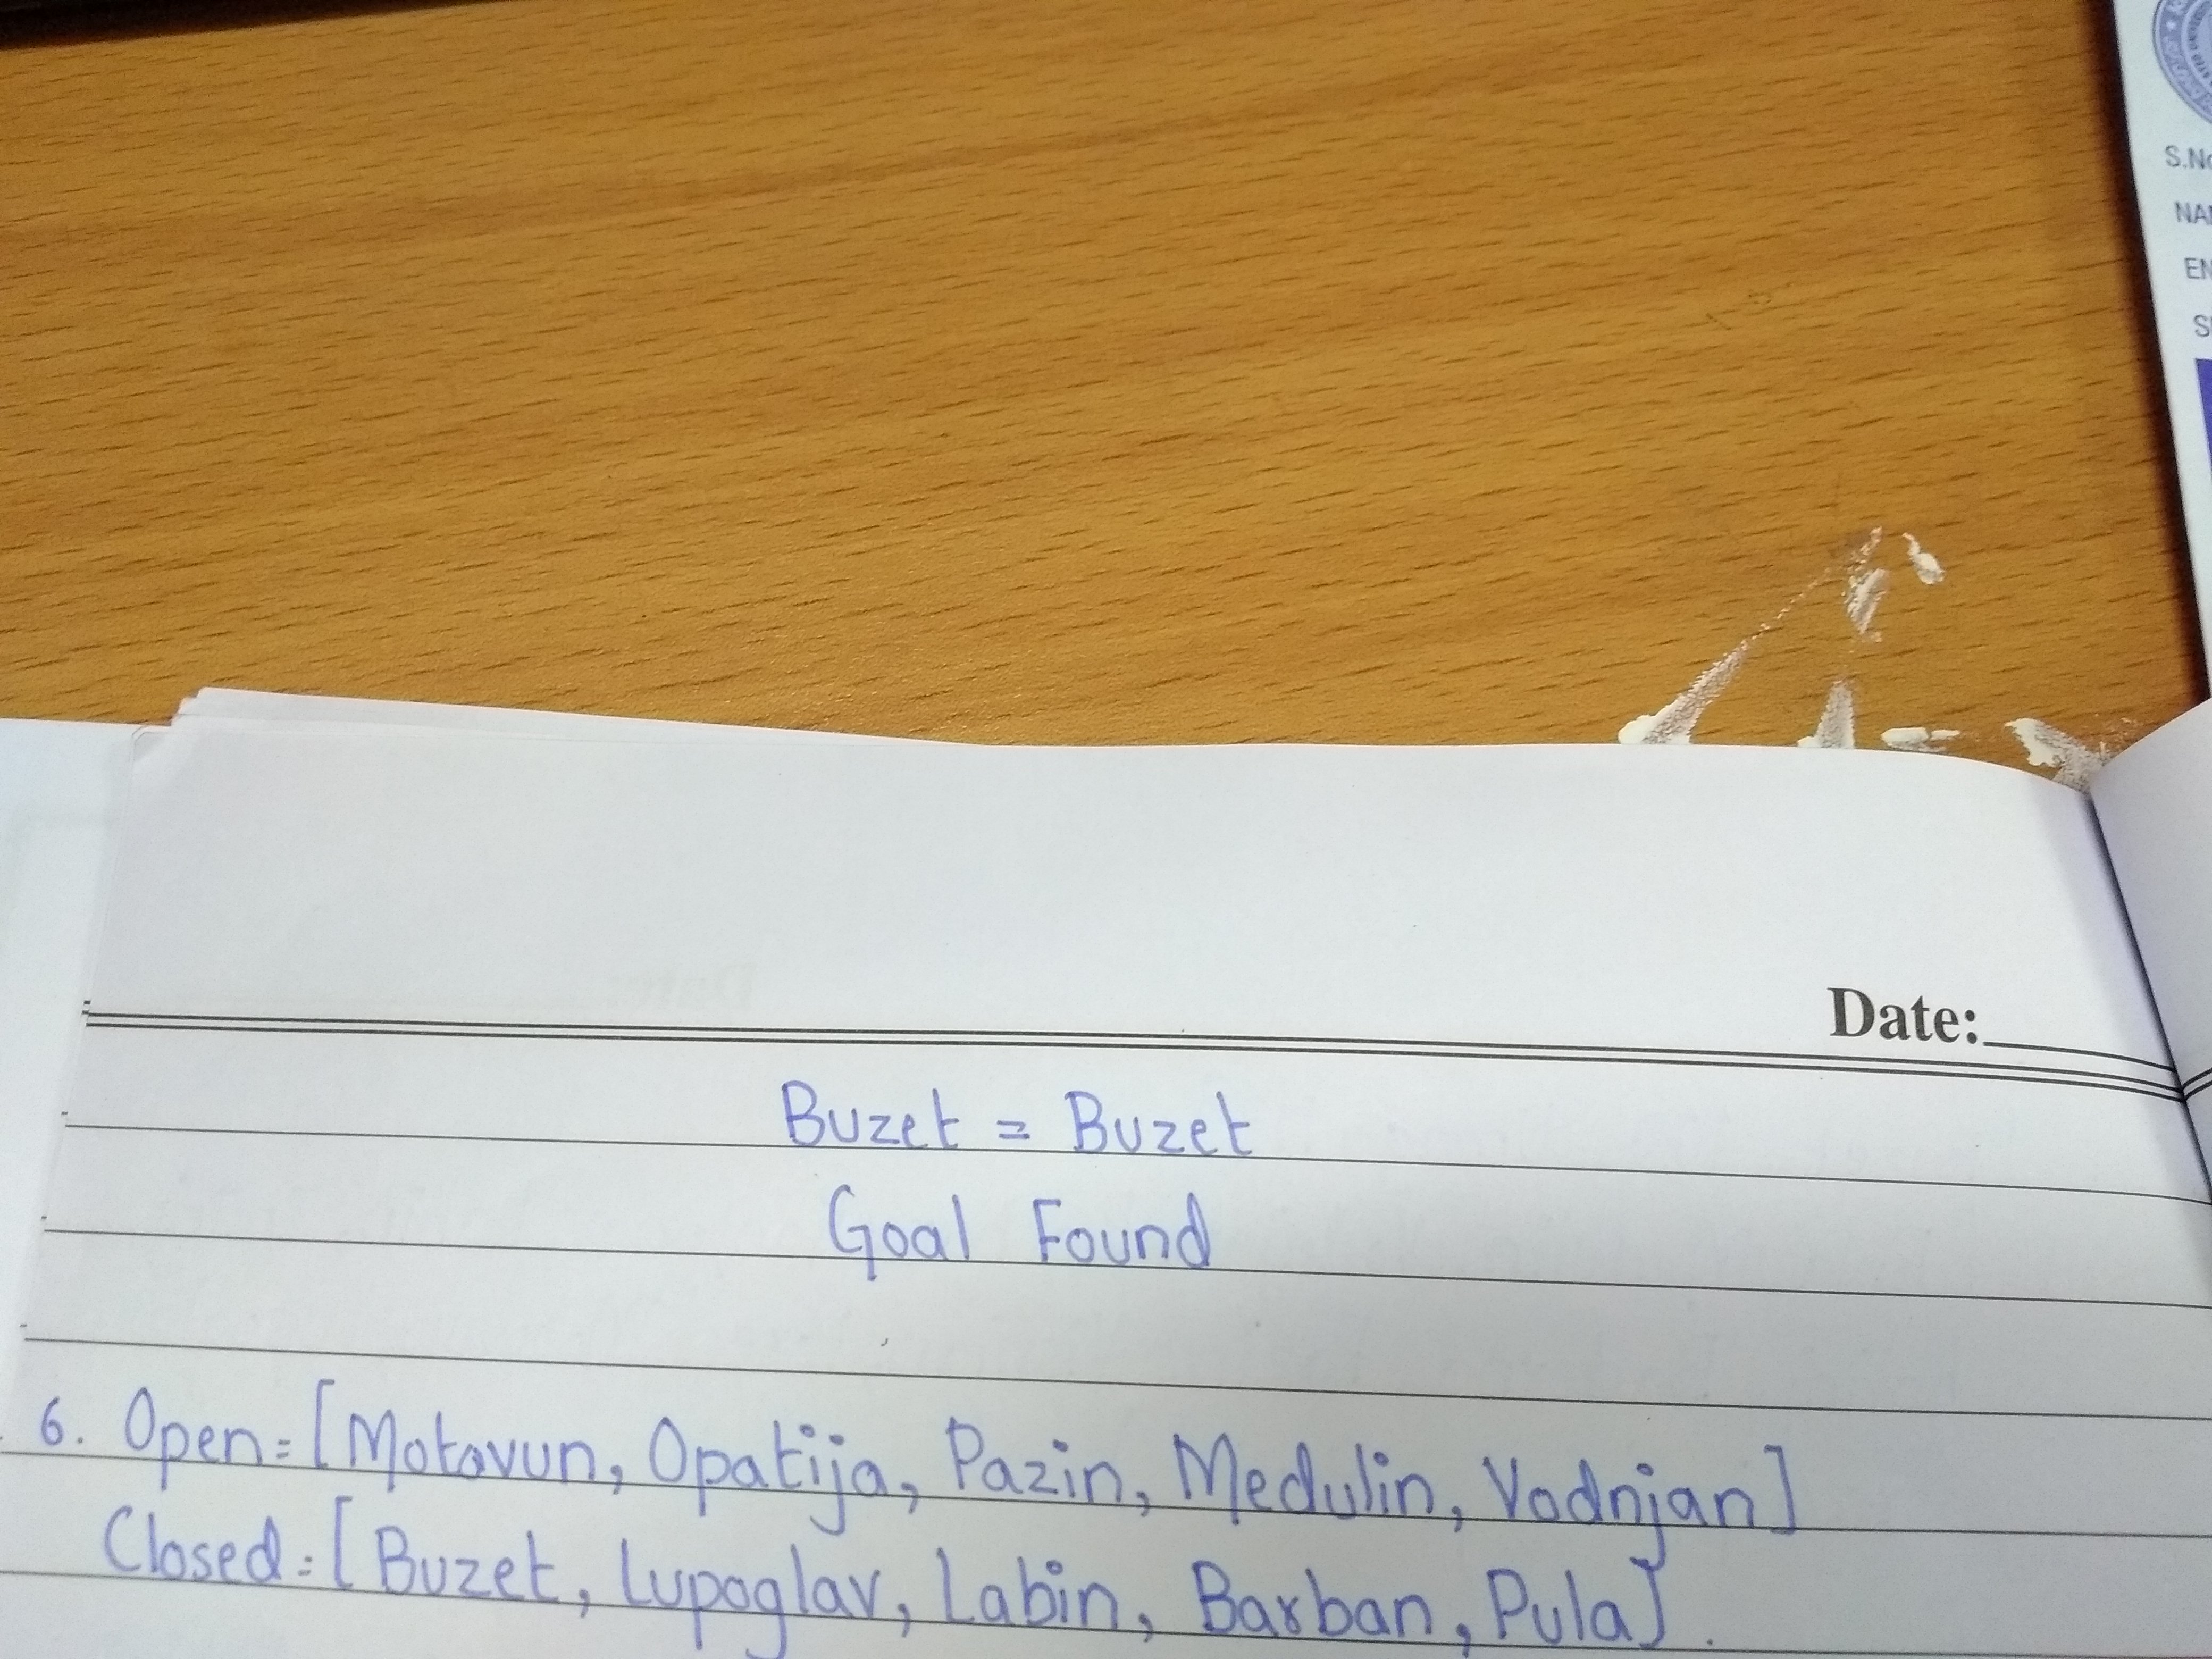 S.No
Date:
Buzet = Buzet
Goal Found
6. Open=[Motovun, Opatija, Pazin, Medulin, Vodnjan]
Closed=[Buzet, Lupoglav, Labin, Barban, Pula].